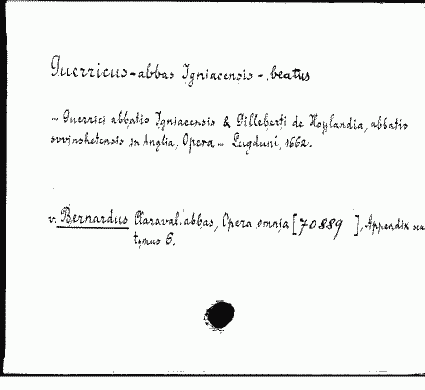 Guerricus - abbas Igniacensis - beatus
- Guerrici abbatis Igniacensis & Gilleberti de Hoylandia, abbatis
in Anglia, Opera - Lugduni, 1662.
v. Bernardus Claraval. abbas, Opera omnia [70889 ], Appendix seu
tomus 6.